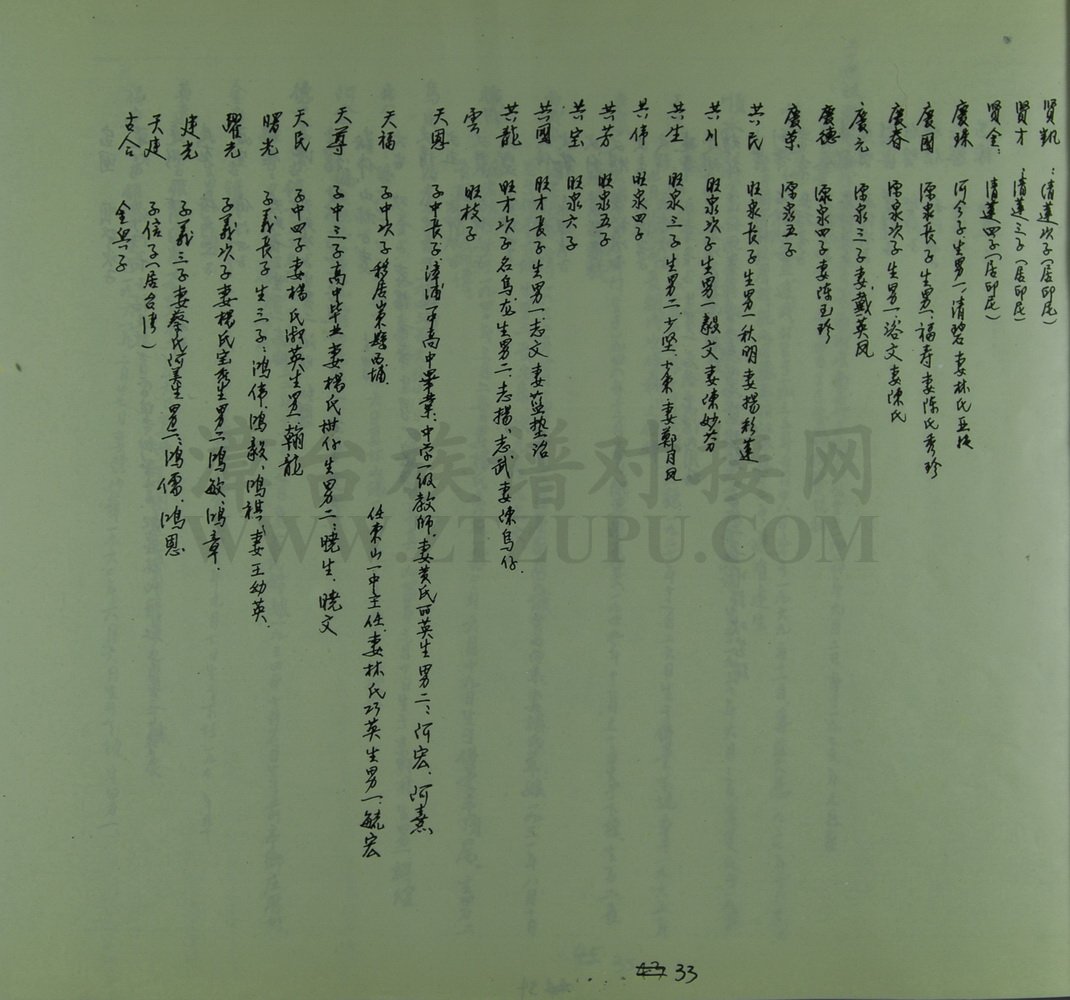 贤凯：清莲次子（居印尼）
贤才：清莲三子（居印尼）
贤金：清莲四子（居印尼）
庆珠 阿今子生男一，清碧妻林氏亚
庆國 深泉長子生男一福寿妻陈氏秀珍
庆春 深泉次子生男一文妻陳氏
庆元 深泉三子妻戴英凤
庆德 深泉四子妻陈玉珍
庆荣 深泉五子
共民 旺泉長子生男一秋明妻楊彩莲
共川 旺泉次子生男一毅文妻陳妙芬
共生 旺泉三子生男二，少坚、少東妻鄭月凤
共伟 旺泉四子
共芳 旺泉五子
共宝 旺泉六子
共國 旺才長子生男一志文妻蓝
共龍 旺才次子名烏龙生男二、志揚、志武妻陳烏仔.
雲 旺枝子
天恩 子中長子漳浦一中高中畢業，中学一级教師.妻黄氏丽英生男二：阿宏.阿熹
天福 子中次子移居東山县西埔 任東山一中主任.妻林氏巧英生男一毓宏
天尊 子中三子高中毕业妻楊氏柑仔生男二：曉生.曉文
天民 子中四子妻楊氏淑英生男一翰龍
曙光 子義長子生三子：鴻伟，鴻毅，鴻祺，妻王幼英.
耀光 子義次子妻楊氏宝秀生男二鴻敏，鴻章.
建光 子義三子妻蔡氏阿美生男二：鴻儒，鴻恩
天建 子信子（居台湾）
古合 金興子
33
漳台族谱对接网
WWW.ZTZUPU.COM